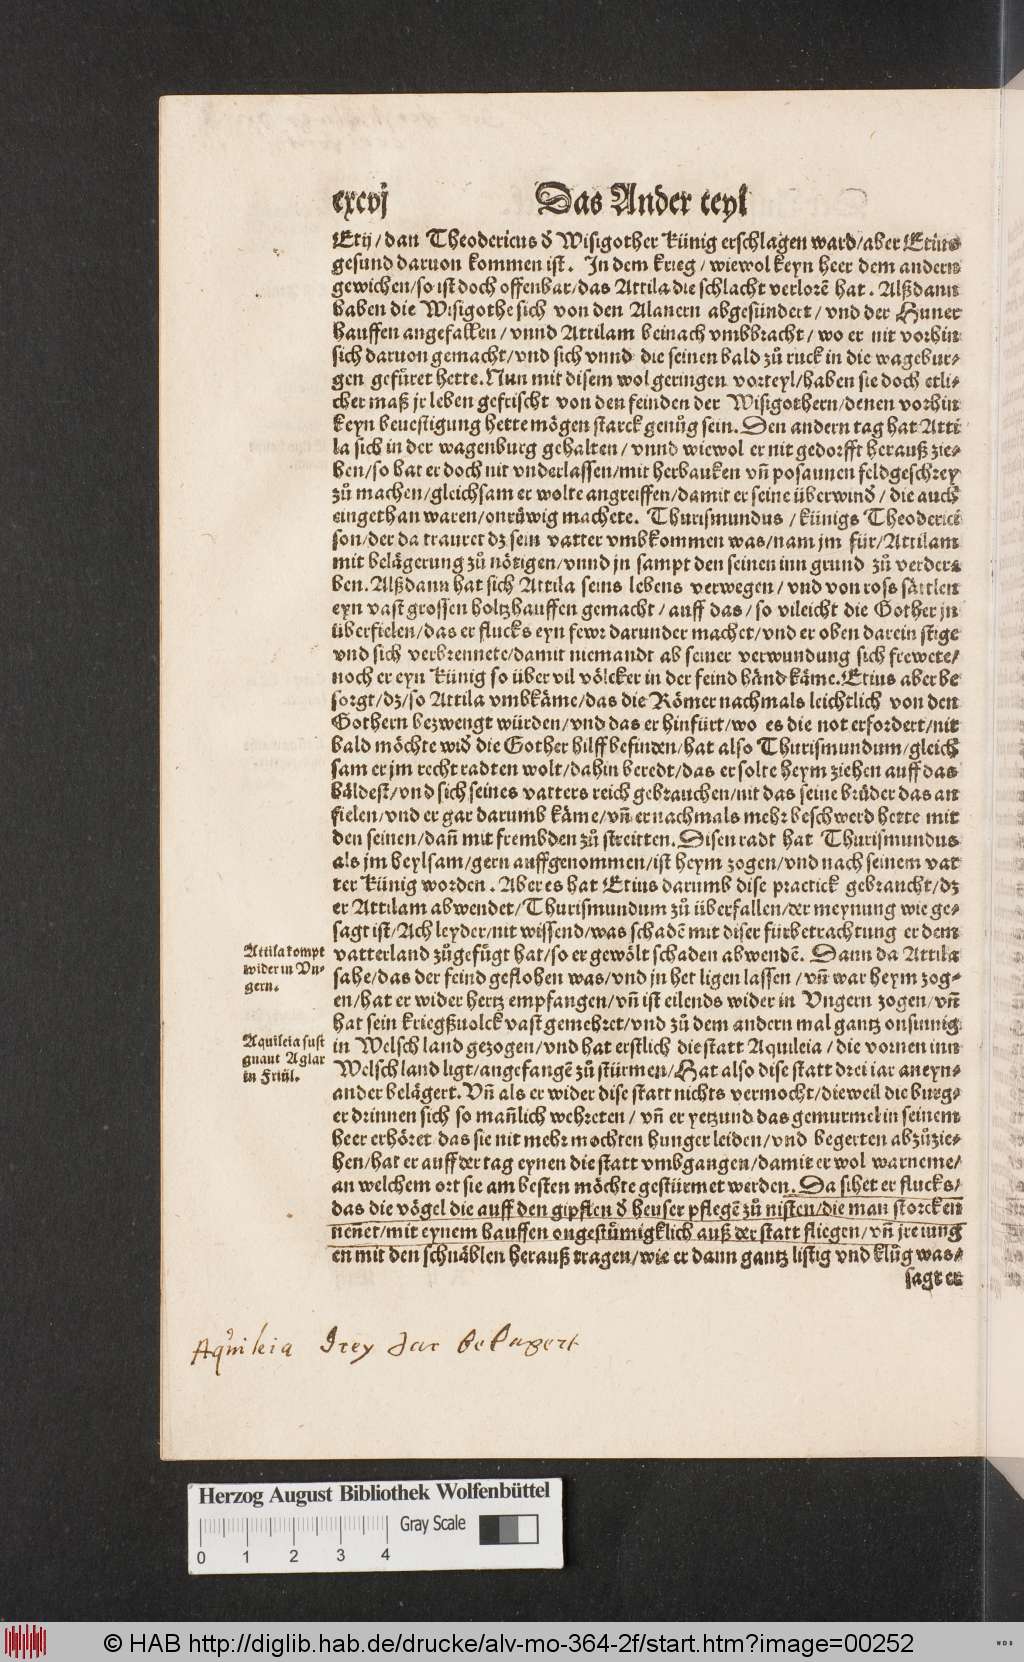 cxcvj Das Ander teyl
Etij/dan Theodericus đ Wisigother Künig erschlagen ward/aber Etius
gesund daruon kommen ist. In dem krieg/wiewol keyn heer dem andern
gewichen/so ist doch offenbar/das Attila die schlacht verlorē hat. Alßdann
haben die Wisigothe sich von den Alanern abgesündert/vnd der Huner
hauffen angefallen/vnnd Attilam beinach vmbbracht/wo er nit vorhin
sich daruon gemacht/vnd sich vnnd die seinen bald zů ruck in die wagebur-
gen gefüret hette. Nun mit disem wol geringen vorteyl/haben sie doch etli-
cher maß jr leben gefrischt von den feinden der Wisigothern/denen vorhin
keyn beuestigung hette mögen starck genůg sein. Den andern tag hat Atti
la sich in der wagenburg gehalten/vnnd wiewol er nit gedorfft herauß zie-
hen/so hat er doch nit vnderlassen/mit herbauken vñ posaunen feldgeschrey
zů machen/gleichsam er wolte angreiffen/damit er seine überwinđ/die auch
eingethan waren/onrüwig machete. Thurismundus/künigs Theoderici
son/der da trauret dz sein vatter vmbkommen was/nam jm für/Attilam
mit belägerung zů nötigen/vnnd jn sampt den seinen inn grund zů verder-
ben. Alßdann hat sich Attila seins lebens verwegen/vnd von ross sättlen
eyn vast grossen holtzhauffen gemacht/auff das/so vileicht die Gother jn
überfielen/das er flucks eyn fewr darunder machet/vnd er oben darein stige
vnd sich verbrennete/damit niemandt ab seiner verwundung sich frewete/
noch er eyn Künig so über vil völcker in der feind händ käme. Etius aber be
sorgt/dz/so Attila vmbkäme/das die Römer nachmals leichtlich von den
Gothern bezwengt würden/vnd das er hinfürt/wo es die not erfordert/nit
bald möchte wiđ die Gother hilff befinden/hat also Thurismundum/gleich
sam er jm recht radten wolt/dahin beredt/das er solte heym ziehen auff das
bäldest/vnd sich seines vatters reich gebrauchen/nit das seine brüder das an
fielen/vnd er gar darumb käme/vñ er nachmals mehr beschwerd hette mit
den seinen/dañ mit frembden zů streitten. Disen radt hat Thurismundus
als jm heylsam/gern auffgenommen/ist heym zogen/vnd nach seinem vat
ter Künig worden. Aber es hat Etius darumb dise practick gebraucht/dz
er Attilam abwendet/Thurismundum zů überfallen/der meynung wie ge-
sagt ist/Ach leyder/nit wissend/was schadē mit diser fürbetrachtung er dem
vatterland zůgefügt hat/so er gewölt schaden abwendē. Dann da Attila
sahe/das der feind geflohen was/vnd jn het ligen lassen/vñ war heym zog-
en/hat er wider hertz empfangen/vñ ist eilends wider in Vngern zogen/vñ
hat sein kriegßuolck vast gemehret/vnd zů dem andern mal gantz onsinnig
in Welsch land gezogen/vnd hat erstlich die statt Aquileia/die vornen inn
Welsch land ligt/angefangē zů stürmen/Hat also dise statt drei iar aneyn-
ander belägert. Vñ als er wider dise statt nichts vermocht/dieweil die burg-
er drinnen sich so mañlich wehreten/vñ er yetzund das gemurmel in seinem
heer erhöret das sie nit mehr mochten hunger leiden/vnd begerten abzůzie-
hen/hat er auff der tag eynen die statt vmbgangen/damit er wol warneme/
an welchem ort sie am besten möchte gestürmet werden. Da sihet er flucks/
das die vögel die auff den gipflen đ heuser pflegē zů nisten/die man storcken
neñet/mit eynem hauffen ongestümigklich auß der statt fliegen/vñ jre iung
en mit den schnäblen herauß tragen/wie er dann gantz listig vnd klůg was/
sagt er
Attila kompt
wider in Vn-
gern.
Aquileia sust
gnant Aglar
in Friül.
Aquileia Drey Jar belagert
Herzog August Bibliothek Wolfenbüttel
Gray Scale
0 1 2 3 4
© HAB http://diglib.hab.de/drucke/alv-mo-364-2f/start.htm?image=00252